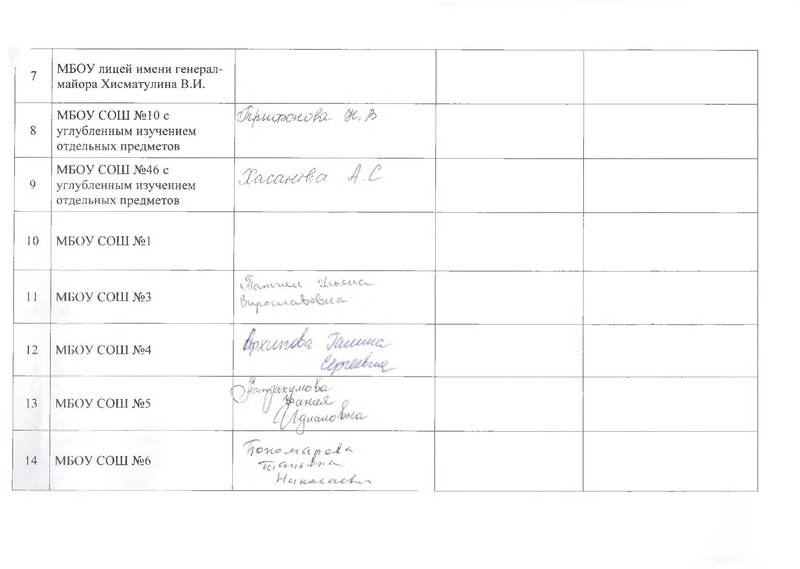 7
МБОУ лицей имени генерал-
майора Хисматулина В.И.
8
МБОУ СОШ №10 с
углубленным изучением
отдельных предметов
Трифонова Н.В
9
МБОУ СОШ №46 с
углубленным изучением
отдельных предметов
Хасанова А.С
10
МБОУ СОШ №1
11
МБОУ СОШ №3
Ульяна
12
МБОУ СОШ №4
Архипова Галина
Сергеевна
13
МБОУ СОШ №5
14
МБОУ СОШ №6
Пономарева
Татьяна
Николаевн